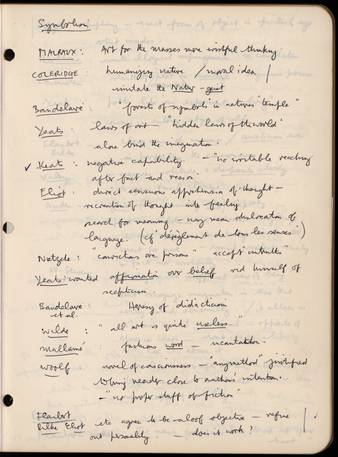 Symbolism
MALRAUX: Art for the masses mere wishful thinking
COLERIDGE: humanizing nature / moral idea
imitate the Natur-geist
Baudelaire: "forests of symbols in nature's temple"
Yeats: laws of art — "hidden laws of the world"
alone bind the imagination.
Keats: negative capability — "no irritable reaching
after fact and reason.
Eliot: direct sensuous apprehension of thought —
recreation of thought into feeling
search for meaning — may mean dislocation of
language. (cf "dérèglement de tous les senses")
Nietzsche: convictions are prisons accept
Yeats: wanted affirmation over belief rid himself of
scepticism.
Baudelaire et al. Heresy of didacticism
Wilde: "all art is quite useless."
Mallarmé: word — incantation.
Woolf: novel of consciousness — "any method" justified
to bring reader close to author's intention.
— "no proper stuff of fiction"
Flaubert
Rilke Eliot etc agree to be aloof objective — refine
out personality. — does it work?